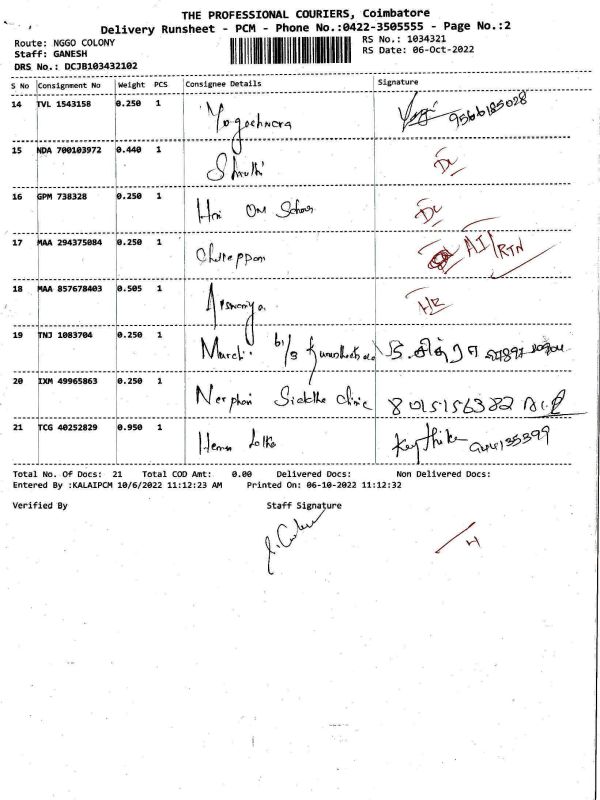 THE PROFESSIONAL COURIERS, Coimbatore
Delivery Runsheet - PCM - Phone No.:0422-3505555 - Page No.:2
Route: NGGO COLONY
Staff: GANESH
DRS No.: DCJB103432102
RS No.: 1034321
RS Date: 06-Oct-2022
S No Consignment No Weight PCS Consignee Details Signature
14 TVL 1543158 0.250 1
15 NDA 700103972 0.440 1 Shruthi DL
16 GPM 738328 0.250 1 Hari Om DL
17 MAA 294375084 0.250 1 AI/RTN
18 MAA 857678403 0.505 1
19 TNJ 1083704 0.250 1
20 IXM 49965863 0.250 1 Siddha Clinic 8015156382
21 TCG 40252829 0.950 1
Total No. Of Docs: 21 Total COD Amt: 0.00 Delivered Docs: Non Delivered Docs:
Entered By :KALAIPCM 10/6/2022 11:12:23 AM Printed On: 06-10-2022 11:12:32
Verified By Staff Signature